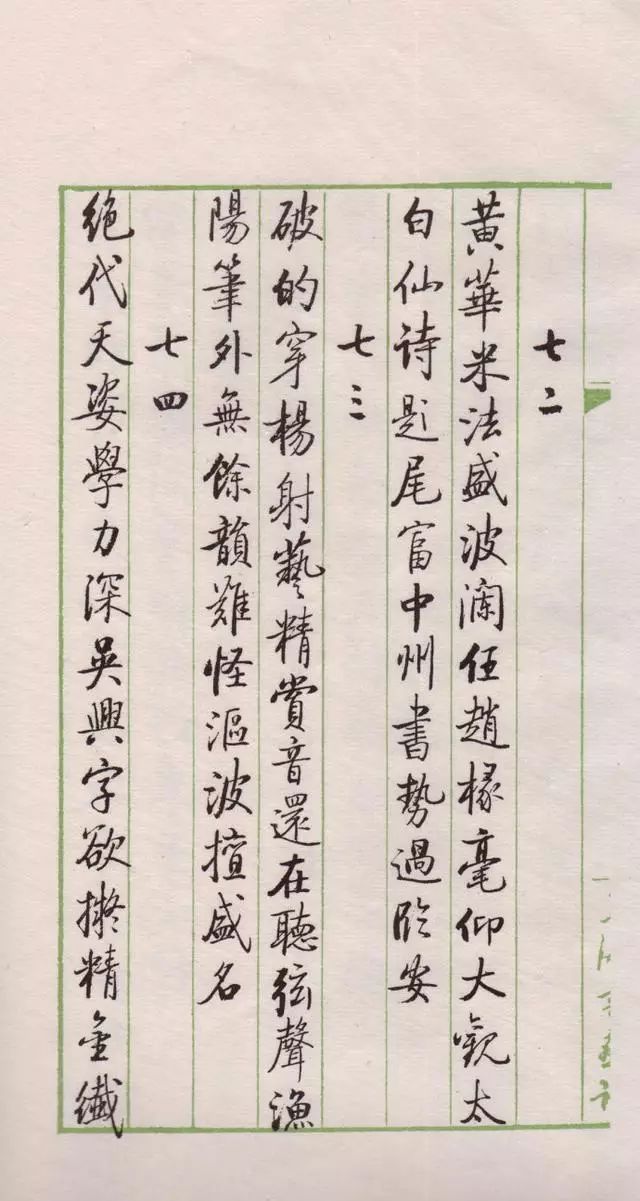 七二
黃華米法盛波瀾任趙椽毫仰大觀太
白仙诗題尾富中州書勢過临安
七三
破的穿楊射藝精賞音還在聽弦聲漁
陽筆外無餘韻難怪漚波擅盛名
七四
絕代天姿學力深吳興字欲擬精金纖